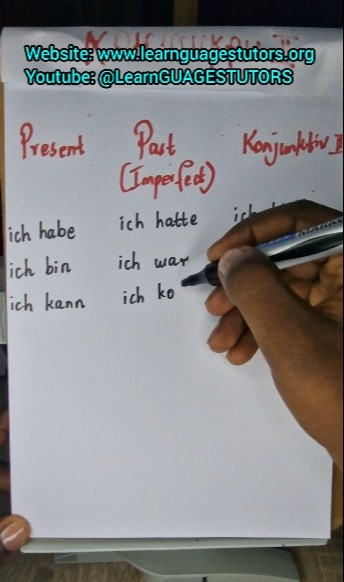 Website: www.learnguagestutors.org
Youtube: @LearnGUAGESTUTORS
Present Past Konjunktiv II
(Imperfect)
ich habe ich hatte ich
ich bin ich war
ich kann ich ko